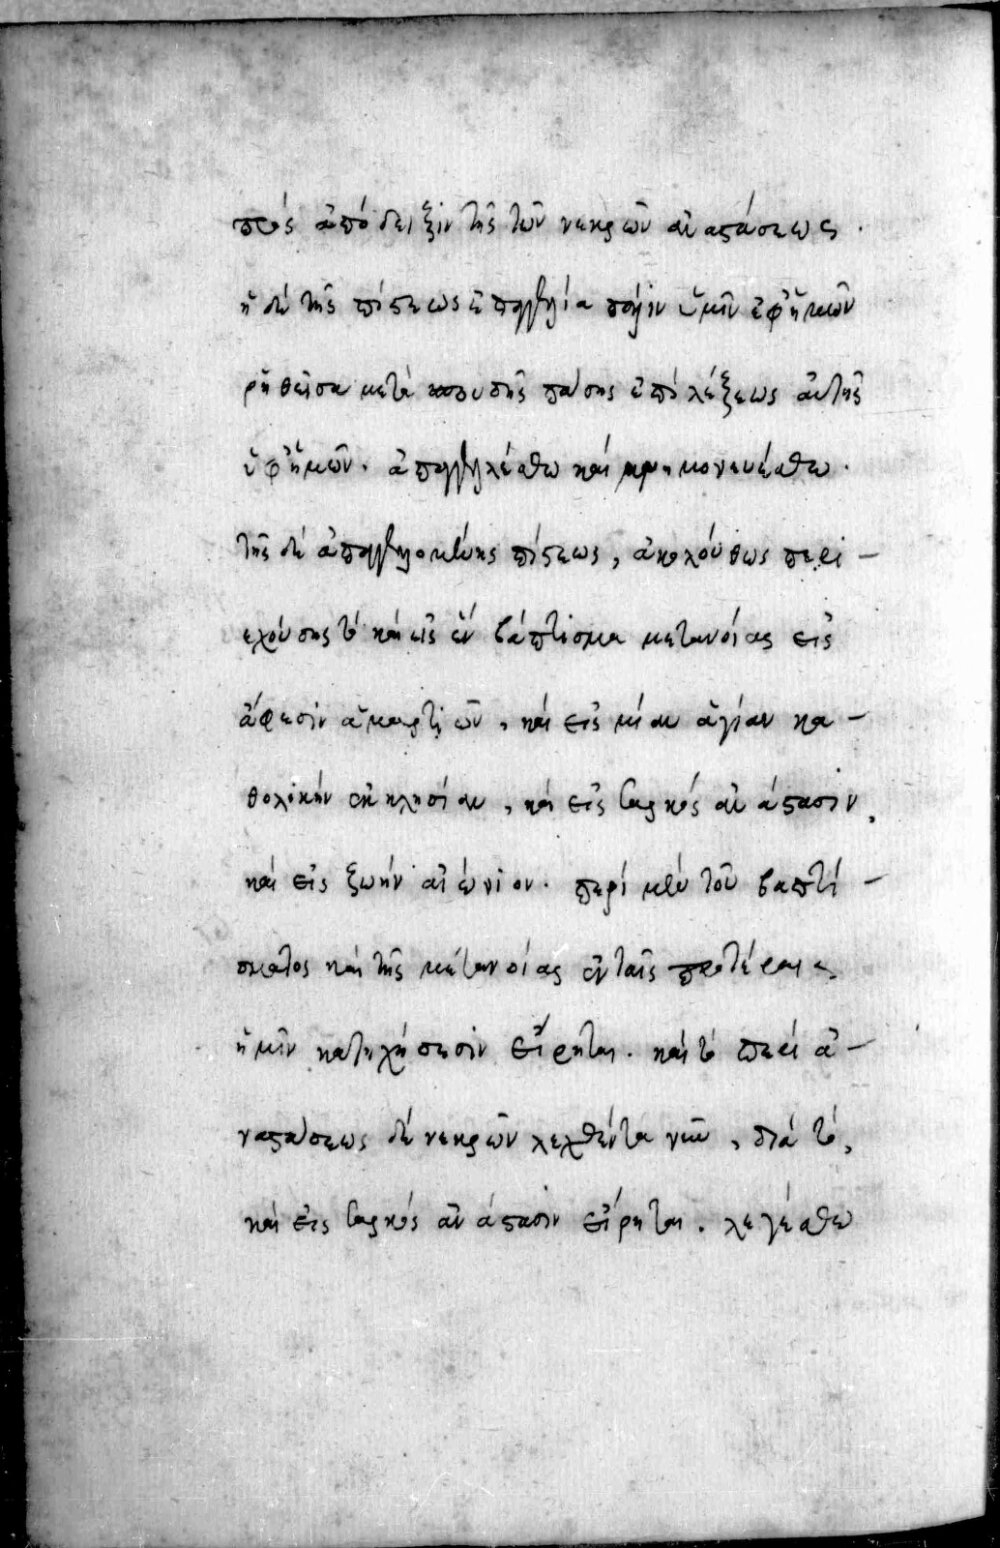 πρὸς ἀπόδειξιν τῆς τῶν νεκρῶν ἀναστάσεως.
ἡ δὲ τῆς πίστεως ἐπαγγελία πάλιν ὑμῖν ἐφ' ἡμῶν
ῥηθεῖσα μετὰ σπουδῆς πάσης ἐπὶ λέξεως αὐτῆς
ὑφ' ἡμῶν. ἀπαγγελλέσθω καὶ μνημονευέσθω.
τῆς δὲ ἀπαγγελλομένης πίστεως, ἀκολούθως περι-
εχούσης τὸ καὶ εἰς ἓν βάπτισμα μετανοίας εἰς
ἄφεσιν ἁμαρτιῶν, καὶ εἰς μίαν ἁγίαν κα-
θολικὴν ἐκκλησίαν, καὶ εἰς σαρκὸς ἀνάστασιν,
καὶ εἰς ζωὴν αἰώνιον. περὶ μὲν τοῦ βαπτί-
σματος καὶ τῆς μετανοίας ἐν ταῖς προτέραις
ἡμῖν κατηχήσεσιν εἴρηται. καὶ τὸ περὶ ἀ-
ναστάσεως δὲ νεκρῶν λεχθέντα νῦν, διὰ τὸ,
καὶ εἰς σαρκὸς ἀνάστασιν εἴρηται. λεγέσθω